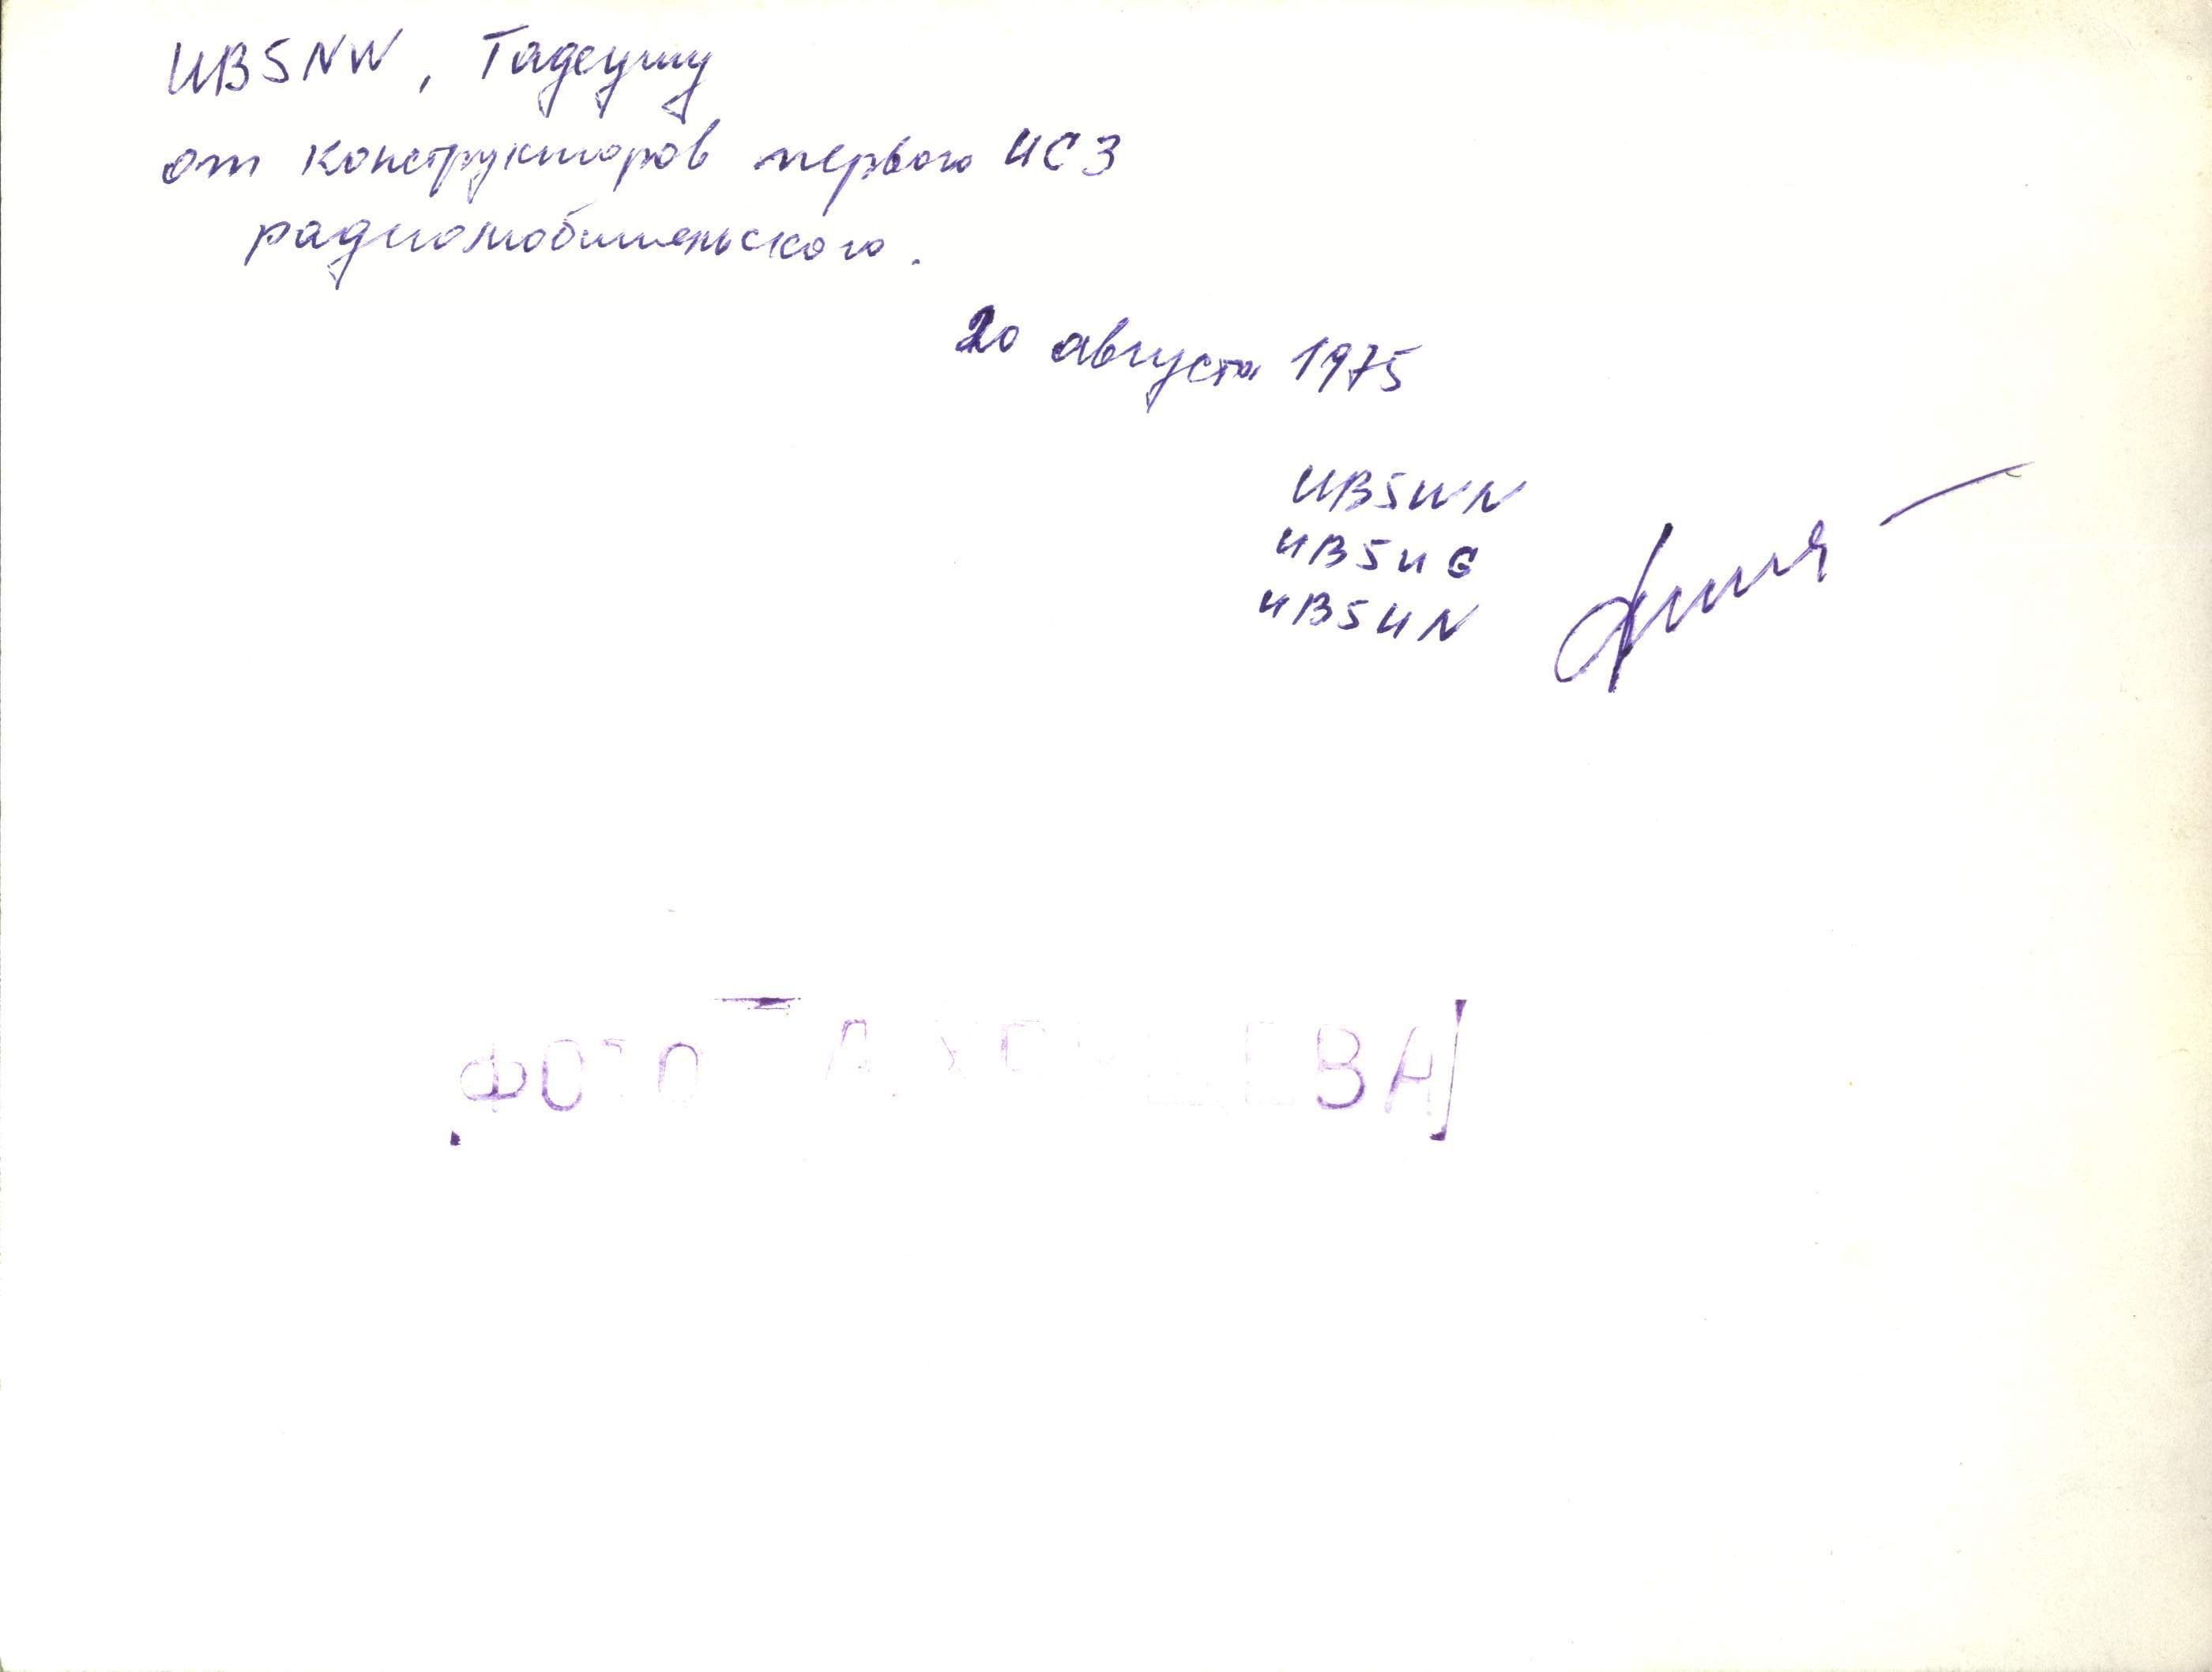 UB5NW, Тадеушу
от конструкторов первого ИСЗ
радиолюбительского.
20 августа 1975
UB5WN
UB5UG
UB5UN
ФОТО